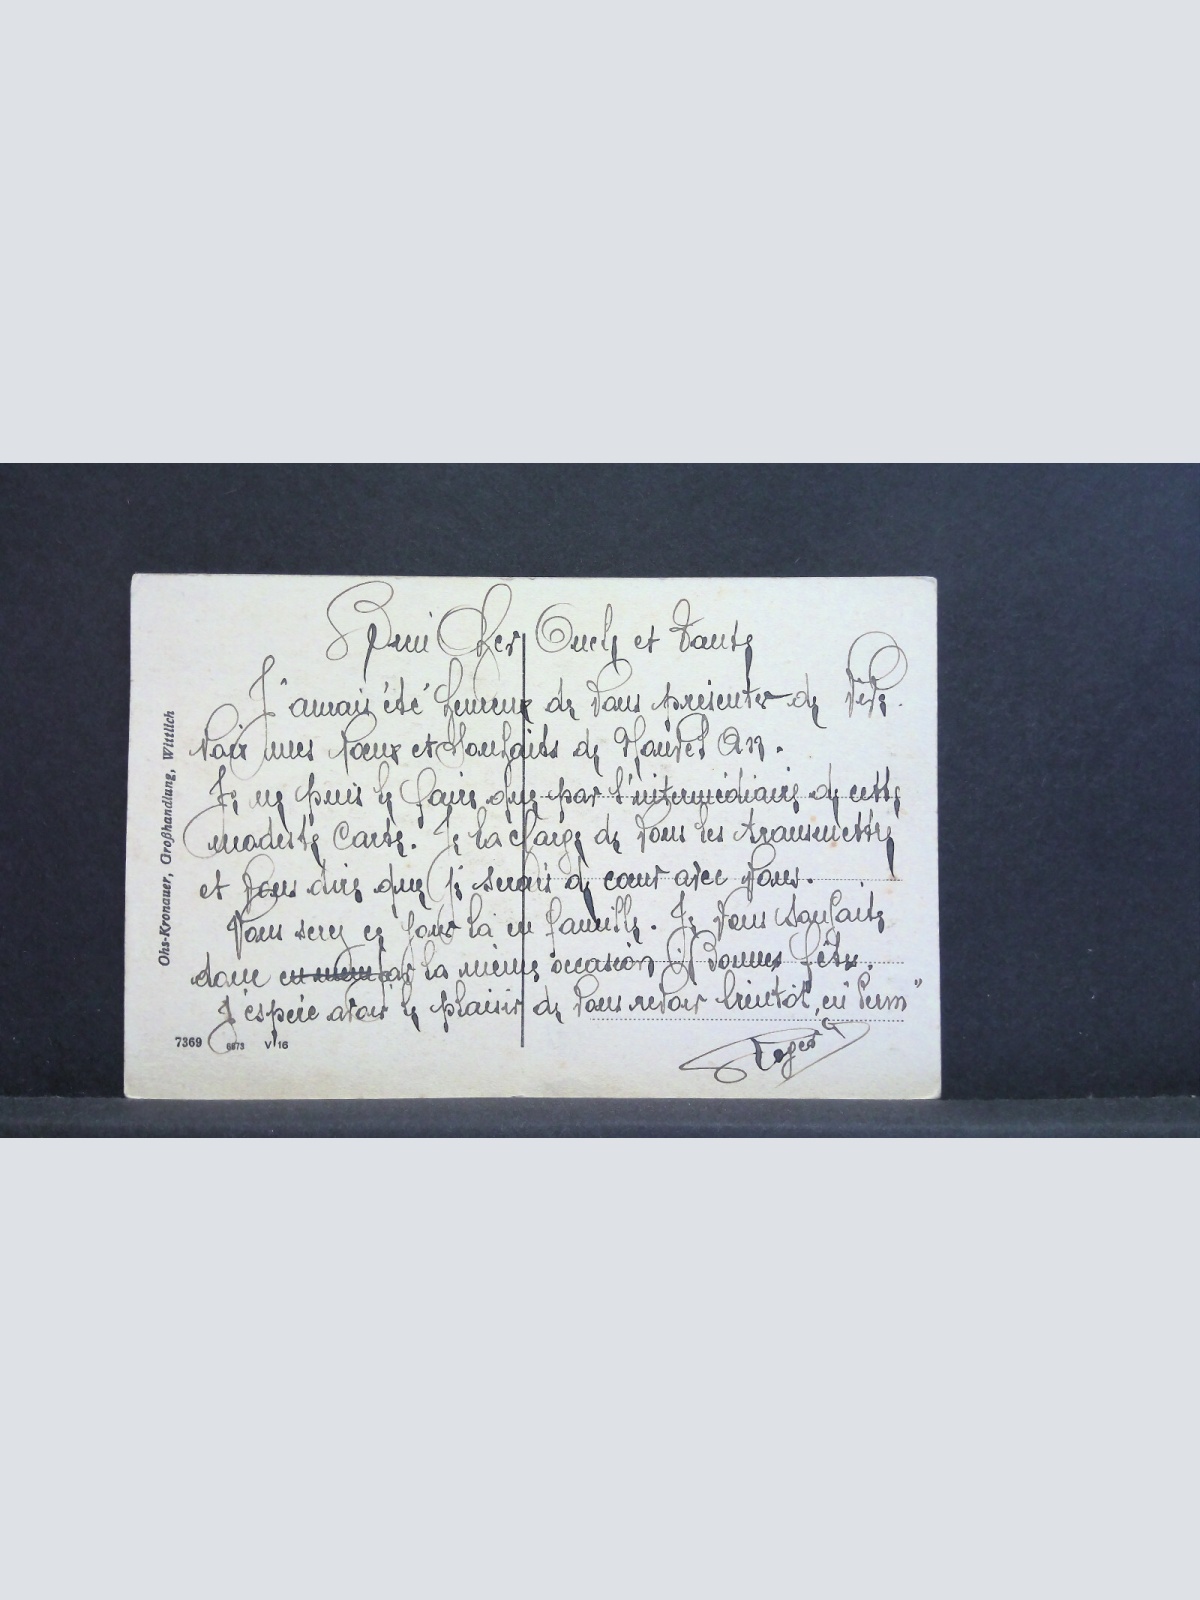 Cher Oncle et Tante
J'aurais été heureux de vous présenter de vive
voix mes vœux et souhaits de Nouvel An.
Je ne puis le faire que par l'intermédiaire de cette
modeste Carte. Je la charge de vous les transmettre
et vous dire que je serais de cœur avec vous.
Vous serez ce jour là en famille. Je vous souhaite
donc par la même occasion Bonnes fêtes.
J'espère avoir le plaisir de vous revoir bientôt, en Perm"
Roger
Ohs-Kronauer, Großhandlung, Wittlich
7369 6673 V 16